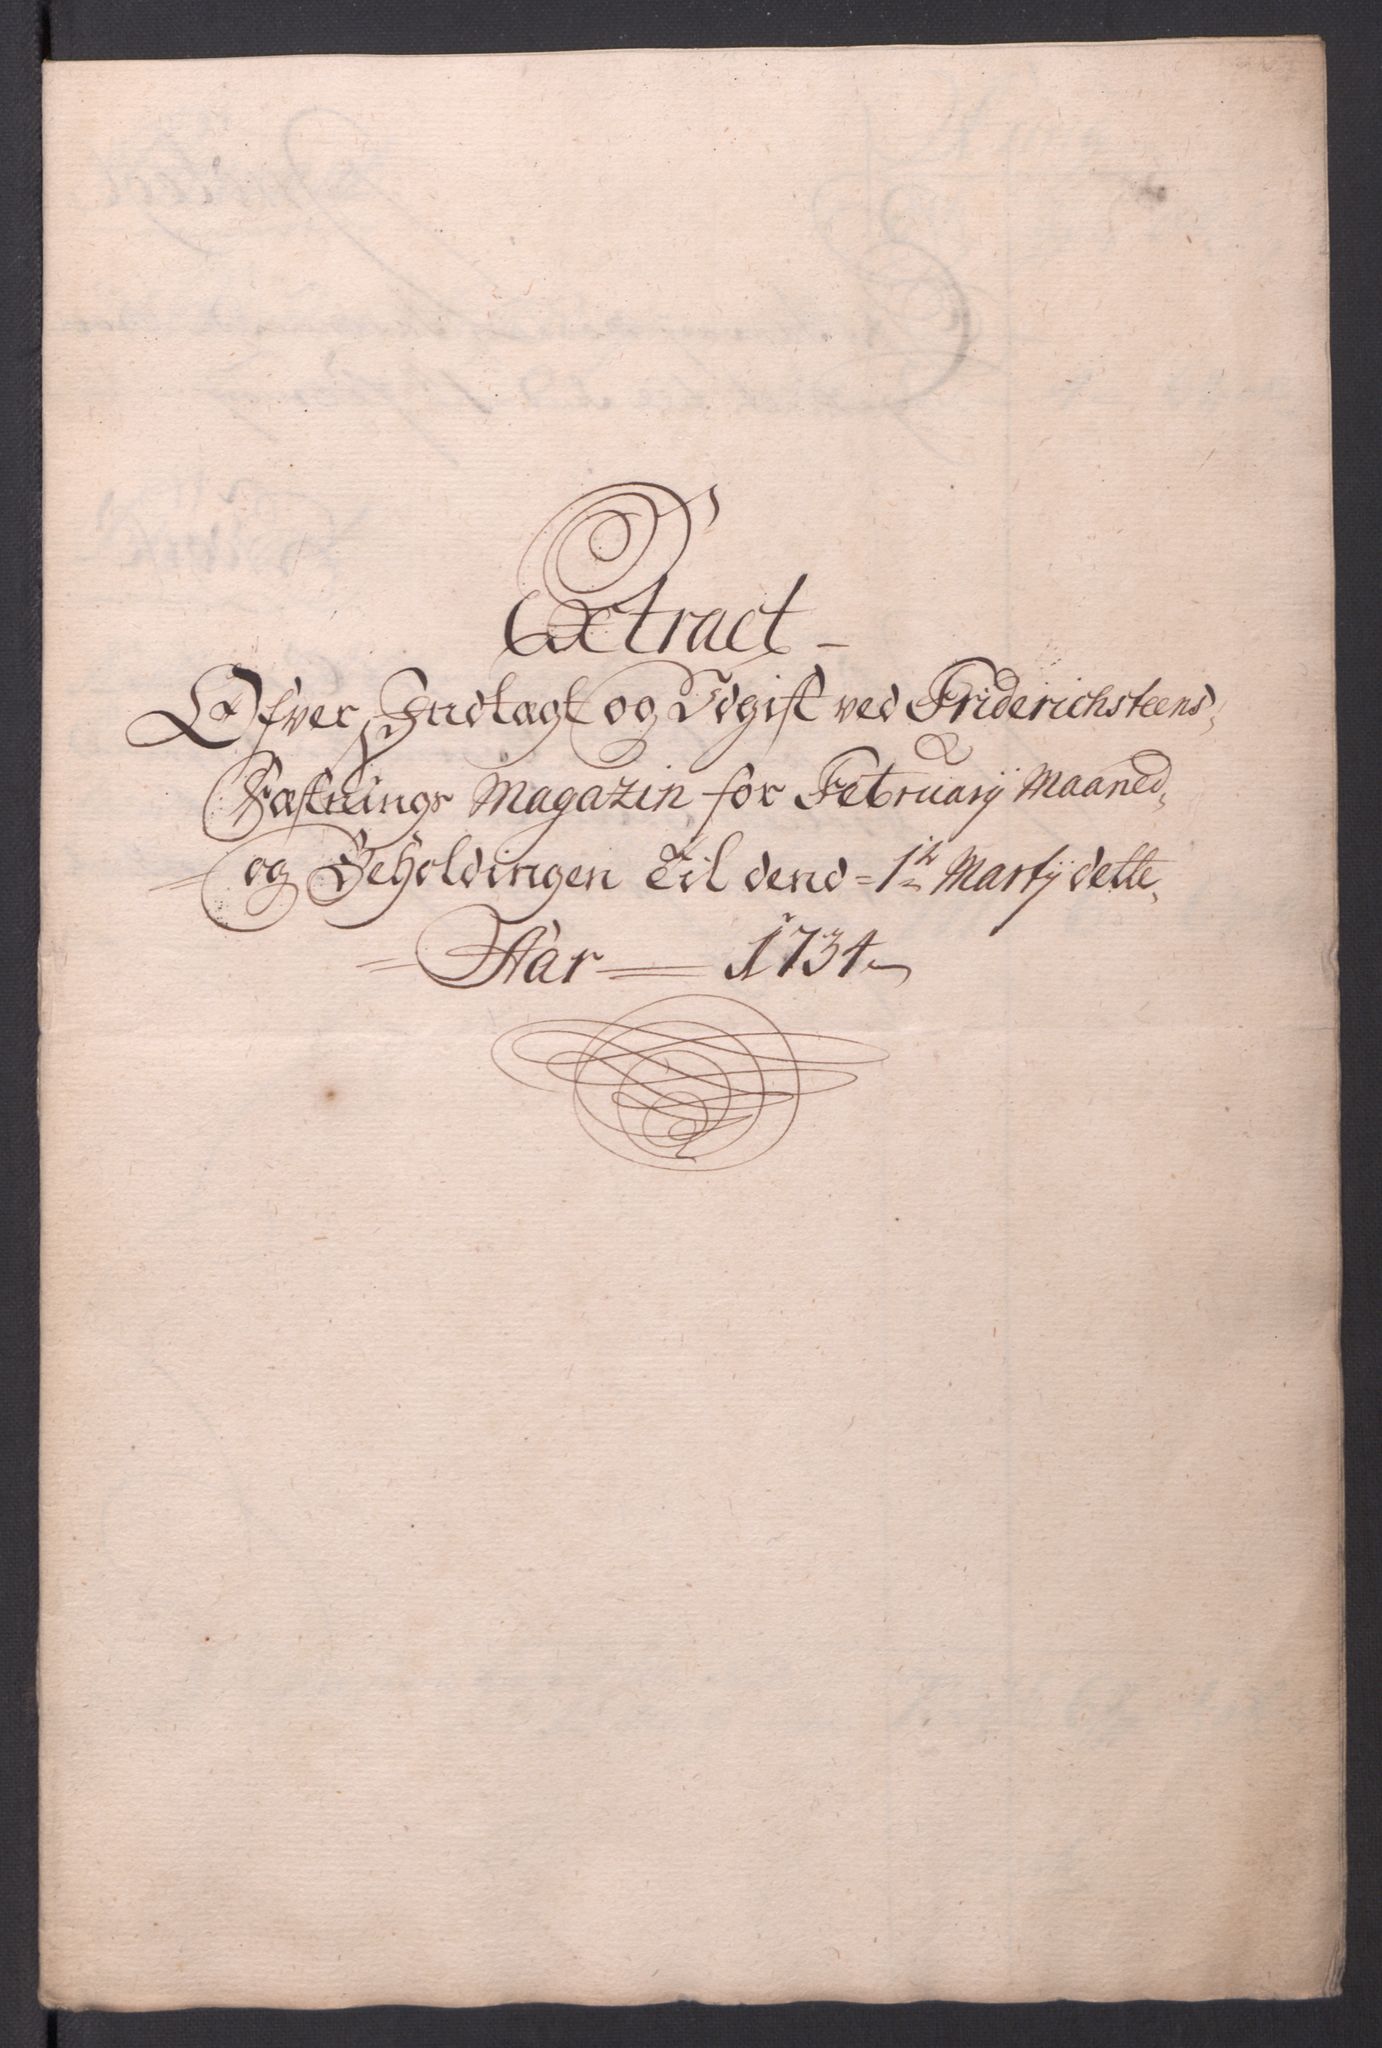 Extract
Ofver Indtægt og Udgift ved Friderichsteens
Fæstnings Magazin for Februarij Maaned,
og Beholdingen Til dend 1te Martij dette
Aar 1734